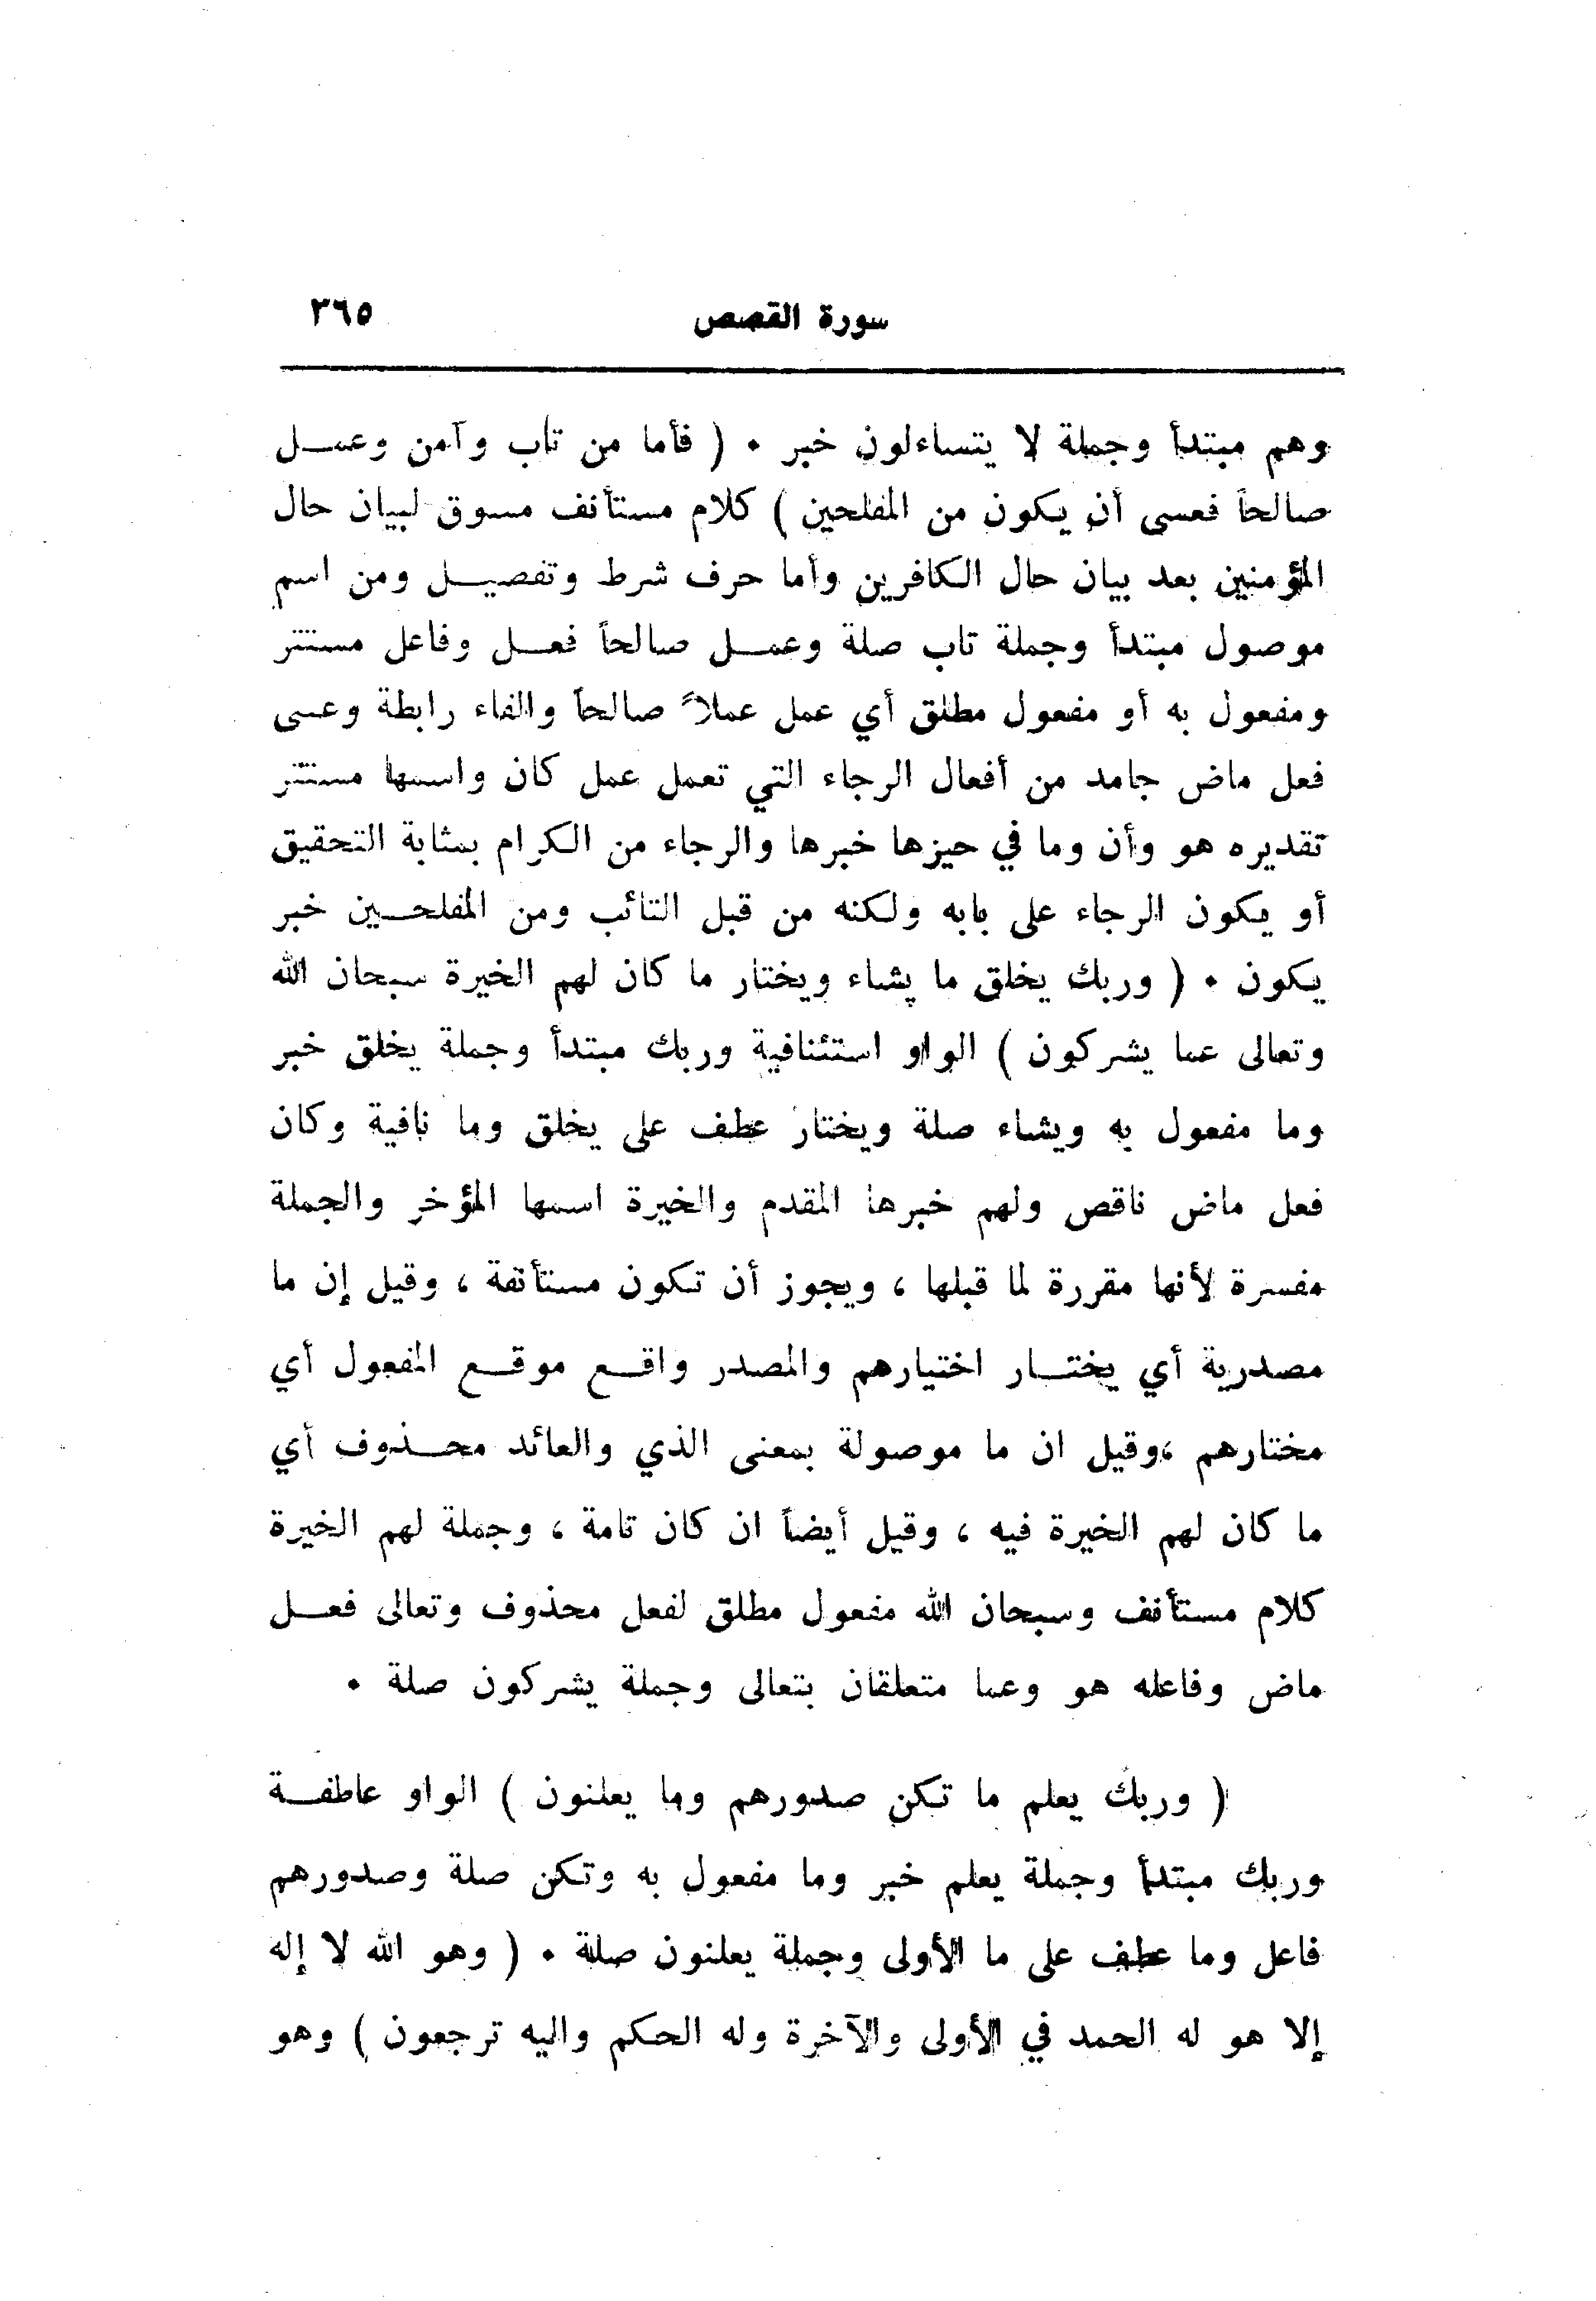 سورة القصص ٣٦٥
وهم مبتدأ وجملة لا يتساءلون خبر ٠ ( فأما من تاب وآمن وعمـــل
صالحاً فعسى أن يكون من المفلحين ) كلام مستأنف مسوق لبيان حال
المؤمنين بعد بيان حال الكافرين وأما حرف شرط وتفصيـــل ومن اسم
موصول مبتدأ وجملة تاب صلة وعمـــل صالحاً فعـــل وفاعل مستتر
ومفعول به أو مفعول مطلق أي عمل عملاً صالحاً والفاء رابطة وعسى
فعل ماض جامد من أفعال الرجاء التي تعمل عمل كان واسمها مستتر
تقديره هو وأن وما في حيزها خبرها والرجاء من الكرام بمثابة التحقيق
أو يكون الرجاء على بابه ولكنه من قبل التائب ومن المفلحـــين خبر
يكون ٠ ( وربك يخلق ما يشاء ويختار ما كان لهم الخيرة سبحان الله
وتعالى عما يشركون ) الواو استئنافية وربك مبتدأ وجملة يخلق خبر
وما مفعول به ويشاء صلة ويختار عطف على يخلق وما نافية وكان
فعل ماض ناقص ولهم خبرها المقدم والخيرة اسمها المؤخر والجملة
مفسرة لأنها مقررة لما قبلها ، ويجوز أن تكون مستأنفة ، وقيل إن ما
مصدرية أي يختـــار اختيارهم والمصدر واقـــع موقـــع المفعول أي
مختارهم ،وقيل ان ما موصولة بمعنى الذي والعائد محـــذوف أي
ما كان لهم الخيرة فيه ، وقيل أيضاً ان كان تامة ، وجملة لهم الخيرة
كلام مستأنف وسبحان الله مفعول مطلق لفعل محذوف وتعالى فعـــل
ماض وفاعله هو وعما متعلقان بتعالى وجملة يشركون صلة ٠
( وربك يعلم ما تكن صدورهم وما يعلنون ) الواو عاطفـــة
وربك مبتدأ وجملة يعلم خبر وما مفعول به وتكن صلة وصدورهم
فاعل وما عطف على ما الأولى وجملة يعلنون صلة ٠ ( وهو الله لا إله
إلا هو له الحمد في الأولى والآخرة وله الحكم واليه ترجعون ) وهو